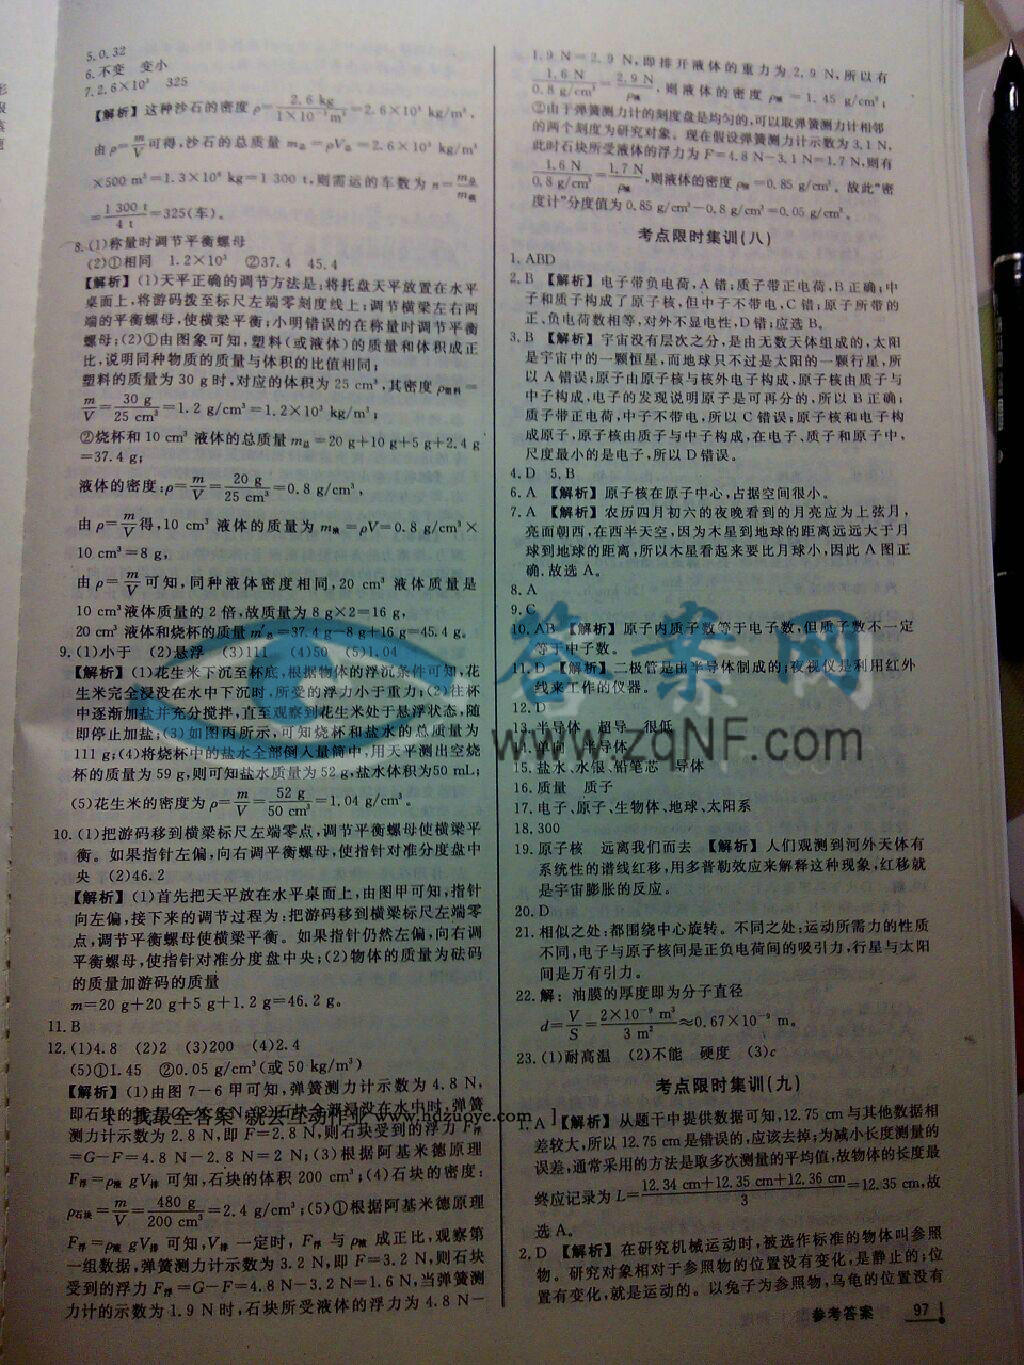 5.0.32
6.不变 变小
7.2.6×10³ 325
【解析】这种沙石的密度ρ=2.6 kg/1×10⁻³m³=2.6×10³ kg/m³,
由ρ=m/V可得,沙石的总质量 m总=ρV总=2.6×10³
×500 m³=1.3×10⁶ kg=1 300 t,则需运的车数为 n=m总/m车
=1 300 t/4 t=325(车)。
8.(1)称量时调节平衡螺母
(2)①相同 1.2×10³ ②37.4 45.4
【解析】(1)天平正确的调节方法是:将托盘天平放置在水平
桌面上,将游码拨至标尺左端零刻度线上;调节横梁左右两
端的平衡螺母,使横梁平衡;小明错误的在称量时调节平衡
螺母;(2)①由图象可知,塑料(或液体)的质量和体积成正
比,说明同种物质的质量与体积的比值相同;
塑料的质量为 30 g时,对应的体积为 25 cm³,其密度 ρ塑料=
m/V=30 g/25 cm³=1.2 g/cm³=1.2×10³ kg/m³;
②烧杯和 10 cm³ 液体的总质量 m总=20 g+10 g+5 g+2.4 g
=37.4 g;
液体的密度:ρ=m/V=20 g/25 cm³=0.8 g/cm³,
由ρ=m/V得,10 cm³ 液体的质量为 m液=ρV=0.8 g/cm³×
10 cm³=8 g,
由ρ=m/V可知,同种液体密度相同,20 cm³ 液体质量是
10 cm³液体质量的 2 倍,故质量为 8 g×2=16 g,
20 cm³ 液体和烧杯的质量m″总=37.4 g-8 g+16 g=45.4 g。
9.(1)小于 (2)悬浮 (3)111 (4)50 (5)1.04
【解析】(1)花生米下沉至杯底,根据物体的浮沉条件可知,花
生米完全浸没在水中下沉时,所受的浮力小于重力;(2)往杯
中逐渐加盐并充分搅拌,直至观察到花生米处于悬浮状态,随
即停止加盐;(3)如图丙所示,可知烧杯和盐水的总质量为
111 g;(4)将烧杯中的盐水全部倒入量筒中,用天平测出空烧
杯的质量为 59 g,则可知盐水质量为 52 g,盐水体积为50 mL;
(5)花生米的密度为ρ=m/V=52 g/50 cm³=1.04 g/cm³。
10.(1)把游码移到横梁标尺左端零点,调节平衡螺母使横梁平
衡。如果指针左偏,向右调平衡螺母,使指针对准分度盘中
央 (2)46.2
【解析】(1)首先把天平放在水平桌面上,由图甲可知,指针
向左偏,接下来的调节过程为:把游码移到横梁标尺左端零
点,调节平衡螺母使横梁平衡。如果指针仍然左偏,向右调
平衡螺母,使指针对准分度盘中央;(2)物体的质量为砝码
的质量加游码的质量
m=20 g+20 g+5 g+1.2 g=46.2 g。
11.B
12.(1)4.8 (2)2 (3)200 (4)2.4
(5)①1.45 ②0.05 g/cm³(或 50 kg/m³)
【解析】(1)由图 7-6 甲可知,弹簧测力计示数为 4.8 N,
测力计示数为 2.8 N,即 F=2.8 N,则石块受到的浮力 F浮
=G-F=4.8 N-2.8 N=2 N;(3)根据阿基米德原理
F浮=ρ液 gV排 可知,石块的体积 200 cm³;(4)石块的密度:
ρ石块=m/V=480 g/200 cm³=2.4 g/cm³;(5)①根据阿基米德原理
F浮=ρ液 gV排 可知,V排 一定时, F浮 与 ρ液 成正比,观察第
一组数据,弹簧测力计示数为 3.2 N,即 F=3.2 N,则石块
受到的浮力 F浮=G-F=4.8 N-3.2 N=1.6 N,当弹簧测
力计的示数为 1.9 N 时,石块所受液体的浮力为 4.8 N-
1.9 N=2.9 N,即排开液体的重力为 2.9 N,所以有
1.6 N/0.8 g/cm³=2.9 N/ρ液,则液体的密度 ρ液=1.45 g/cm³;
②由于弹簧测力计的刻度盘是均匀的,可以取弹簧测力计相邻
的两个刻度为研究对象。现在假设弹簧测力计示数为 3.1 N,
此时石块所受液体的浮力为 F=4.8 N-3.1 N=1.7 N,则有
1.6 N/0.8 g/cm³=1.7 N/ρ液,则液体的密度 ρ液=0.85 g/cm³。故此“密
度计”分度值为 0.85 g/cm³-0.8 g/cm³=0.05 g/cm³。
考点限时集训(八)
1.ABD
2.B 【解析】电子带负电荷,A 错;质子带正电荷,B 正确;中
子和质子构成了原子核,但中子不带电,C 错;原子所带的
正、负电荷数相等,对外不显电性,D 错;应选 B。
3.B 【解析】宇宙没有层次之分,是由无数天体组成的,太阳
是宇宙中的一颗恒星,而地球只不过是太阳的一颗行星,所
以 A 错误;原子由原子核与核外电子构成,原子核由质子与
中子构成,电子的发现说明原子是可再分的,所以 B 正确;
质子带正电荷,中子不带电,所以 C 错误;原子核和电子构
成原子,原子核由质子与中子构成,在电子、质子和原子中,
尺度最小的是电子,所以 D 错误。
4.D 5.B
6.A 【解析】原子核在原子中心,占据空间很小。
7.A 【解析】农历四月初六的夜晚看到的月亮应为上弦月,
亮面朝西,在西半天空,因为木星到地球的距离远远大于月
球到地球的距离,所以木星看起来要比月球小,因此 A 图正
确.故选 A。
8.A
9.C
10.AB 【解析】原子内质子数等于电子数,但质子数不一定
等于中子数。
11.D 【解析】二极管是由半导体制成的;夜视仪是利用红外
线来工作的仪器。
12.D
13.半导体 超导 很低
14.单向 半导体
15.盐水、水银、铅笔芯 导体
16.质量 质子
17.电子、原子、生物体、地球、太阳系
18.300
19.原子核 远离我们而去 【解析】人们观测到河外天体有
系统性的谱线红移,用多普勒效应来解释这种现象,红移就
是宇宙膨胀的反应。
20.D
21.相似之处:都围绕中心旋转。不同之处:运动所需力的性质
不同,电子与原子核间是正负电荷间的吸引力,行星与太阳
间是万有引力。
22.解:油膜的厚度即为分子直径
d=V/S=2×10⁻⁹ m³/3 m²≈0.67×10⁻⁹ m。
23.(1)耐高温 (2)不能 硬度 (3)c
考点限时集训(九)
1.A【解析】从题干中提供数据可知,12.75 cm与其他数据相
差较大,所以 12.75 cm是错误的,应该去掉;为减小长度测量的
误差,通常采用的方法是取多次测量的平均值,故物体的长度最
终应记录为 L=12.34 cm+12.35 cm+12.36 cm/3=12.35 cm,故
选 A。
2.D 【解析】在研究机械运动时,被选作标准的物体叫参照
物。研究对象相对于参照物的位置没有变化,是静止的;位
置有变化,就是运动的。以兔子为参照物,乌龟的位置没有
参考答案 97
答案网
www.zqNF.com
【 找最全答案 就去互动作业 www.hdzuoye.com 】